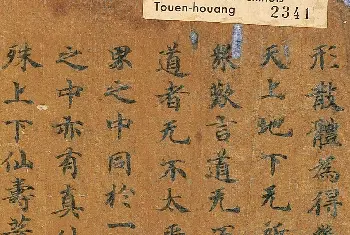 Touen-houang 2341
形散體為得
天上地下无所
歎言道无
道者无不太
果之中同於一
之中亦有真
殊上下仙壽